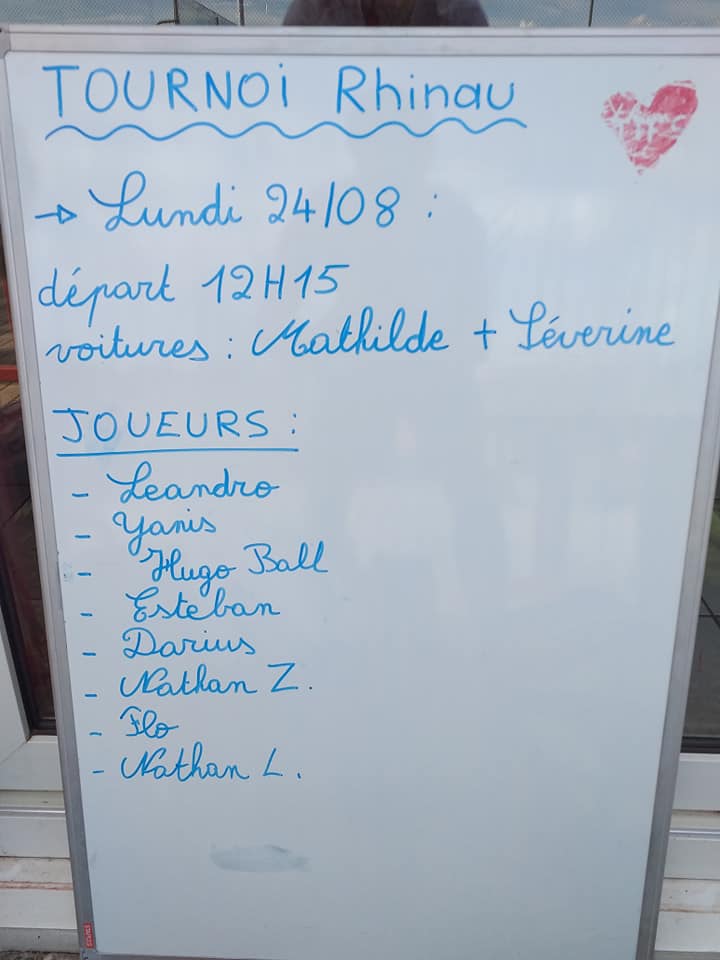 TOURNOI Rhinau
→ Lundi 24/08 :
départ 12H15
voitures : Mathilde + Séverine
JOUEURS :
- Leandro
- Yanis
- Hugo Ball
- Esteban
- Darius
- Nathan Z.
- Flo
- Nathan L.